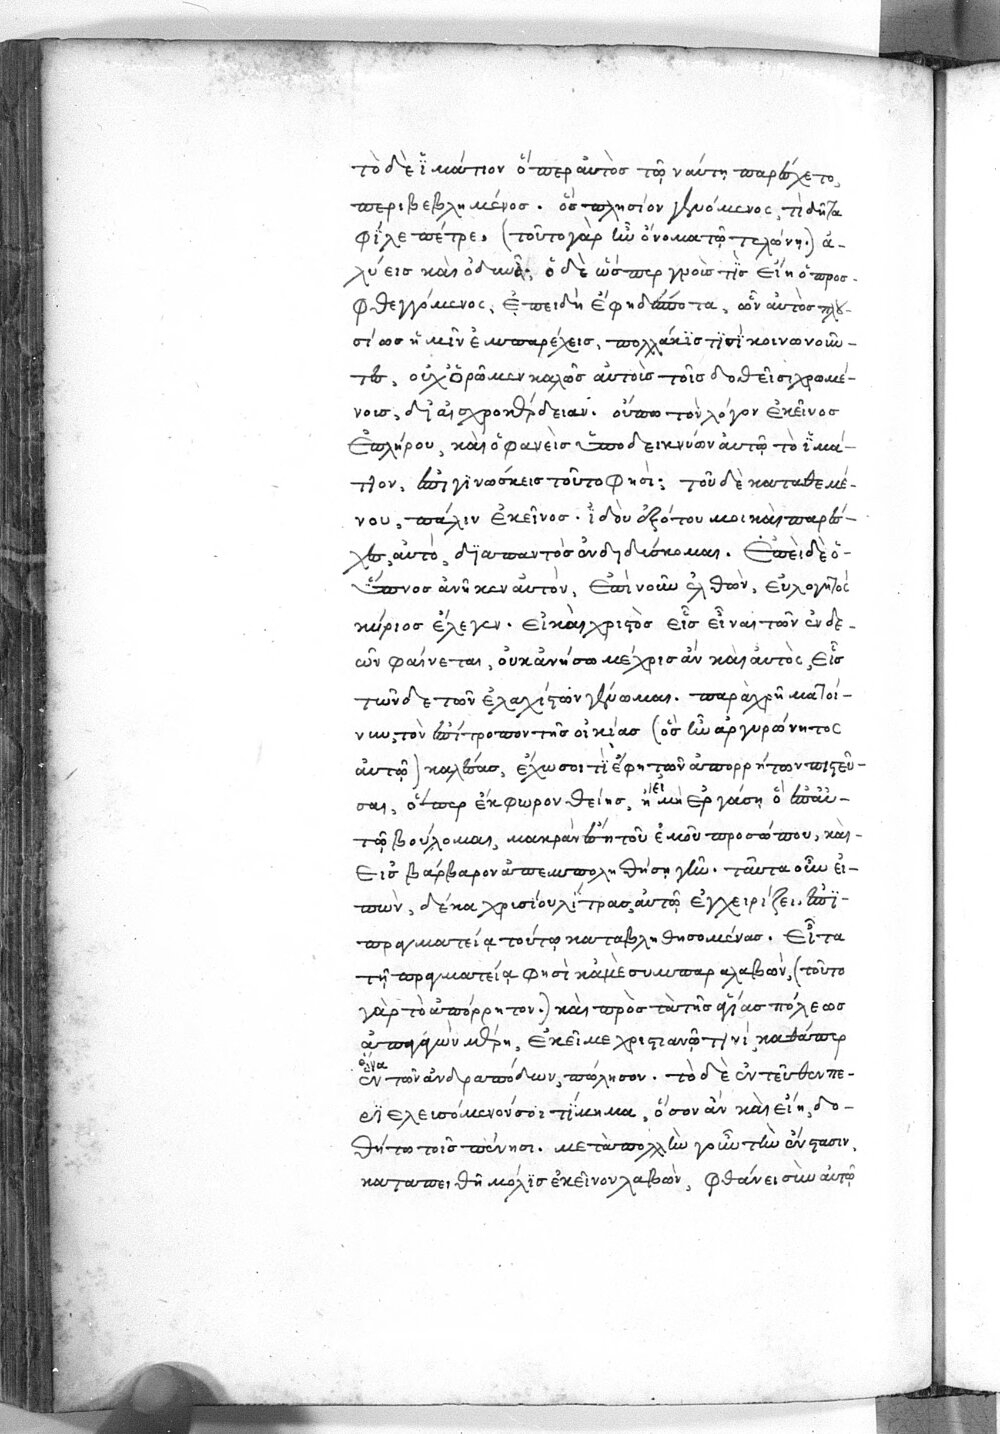 τὸ δὲ ἱμάτιον ὅπερ αὐτὸς τῷ ναύτῃ παρέσχετο,
περιβεβλημένος. ὃς πλησίον γενόμενος, τί δῆτα
φίλε πέτρε, (τοῦτο γὰρ ἦν ὄνομα τῷ τελώνῃ.) ἀ-
λύεις καὶ ὀδυνᾷ; ὁ δὲ ὥσπερ γνοὺς τίς εἴη ὁ προσ-
φθεγγόμενος, ἐπειδὴ ἔφη δέσποτα, ὧν αὐτὸς πλου-
σίως ἡμῖν ἐμπαρέχεις, πολλάκις τισὶ κοινωνοῦν-
τες, οὐχ ὁρῶμεν καλῶς αὐτοὺς τοῖς δοθεῖσι χρωμέ-
νους, δι' αἰσχροκέρδειαν. οὔπω τὸν λόγον ἐκεῖνος
ἐπλήρου, καὶ ὁ φανεὶς ὑποδεικνύων αὐτῷ τὸ ἱμά-
τιον, ἐπιγινώσκεις τοῦτο φησί; τοῦ δὲ καταθεμέ-
νου, πάλιν ἐκεῖνος. ἰδοὺ ἐξότου μοι καὶ παρέσ-
χες αὐτὸ, διαπαντὸς ἐνδιδύσκομαι. Ἐπεὶ δὲ ὁ
ὕπνος ἀνῆκεν αὐτὸν, ἐπὶ νοῦν ἐλθὼν, εὐλογητὸς
κύριος ἔλεγεν. εἰ καὶ χριστὸς εἷς εἶναι τῶν ἐνδε-
ῶν φαίνεται, οὐκ ἀνήσω μέχρις ἂν καὶ αὐτὸς, εἷς
τῶνδε τῶν ἐλαχίστων γένωμαι. παραχρῆμα τοί-
νυν, τὸν ἐπίτροπον τῆς οἰκίας (ὃς ἦν ἀργυρώνητος
αὐτῷ) καλέσας, ἔχω σοι τί ἔφη τῶν ἀπορρήτων πιστεῦ-
σαι, ὅπερ ἐκφωρον θείης, ἢ εἰ μὴ ἐργάσῃ ὃ ἐπ' αὐ-
τῷ βούλομαι, μακρὰν ἔσῃ τοῦ ἐμοῦ προσώπου, καὶ
εἰς βάρβαρον ἀπεμποληθήσῃ γῆν. ταῦτα οὖν εἰ-
πὼν, δέκα χρυσίου λίτρας αὐτῷ ἐγχειρίζει, ἐπὶ
πραγματείᾳ τούτῳ καταβληθησομένας. Εἶτα
τῇ πραγματείᾳ φησὶ κἀμὲ συμπαραλαβὼν, (τοῦτο
γὰρ τὸ ἀπόρρητον.) καὶ πρὸς τὰ τῆς ἁγίας πόλεως
ἀπαγαγὼν μέρη, ἐκεῖ με χριστιανῷ τινὶ, καθάπερ
ἕνα τῶν ἀνδραπόδων, πώλησον. τὸ δὲ ἐντεῦθεν πε-
ριελευσόμενόν σοι τίμημα, ὅσον ἂν καὶ εἴη, δο-
θήτω τοῖς πένησι. μετὰ πολλὴν γοῦν τὴν ἔνστασιν,
καταπειθῆ μόλις ἐκεῖνον λαβὼν, φθάνει σὺν αὐτῷ